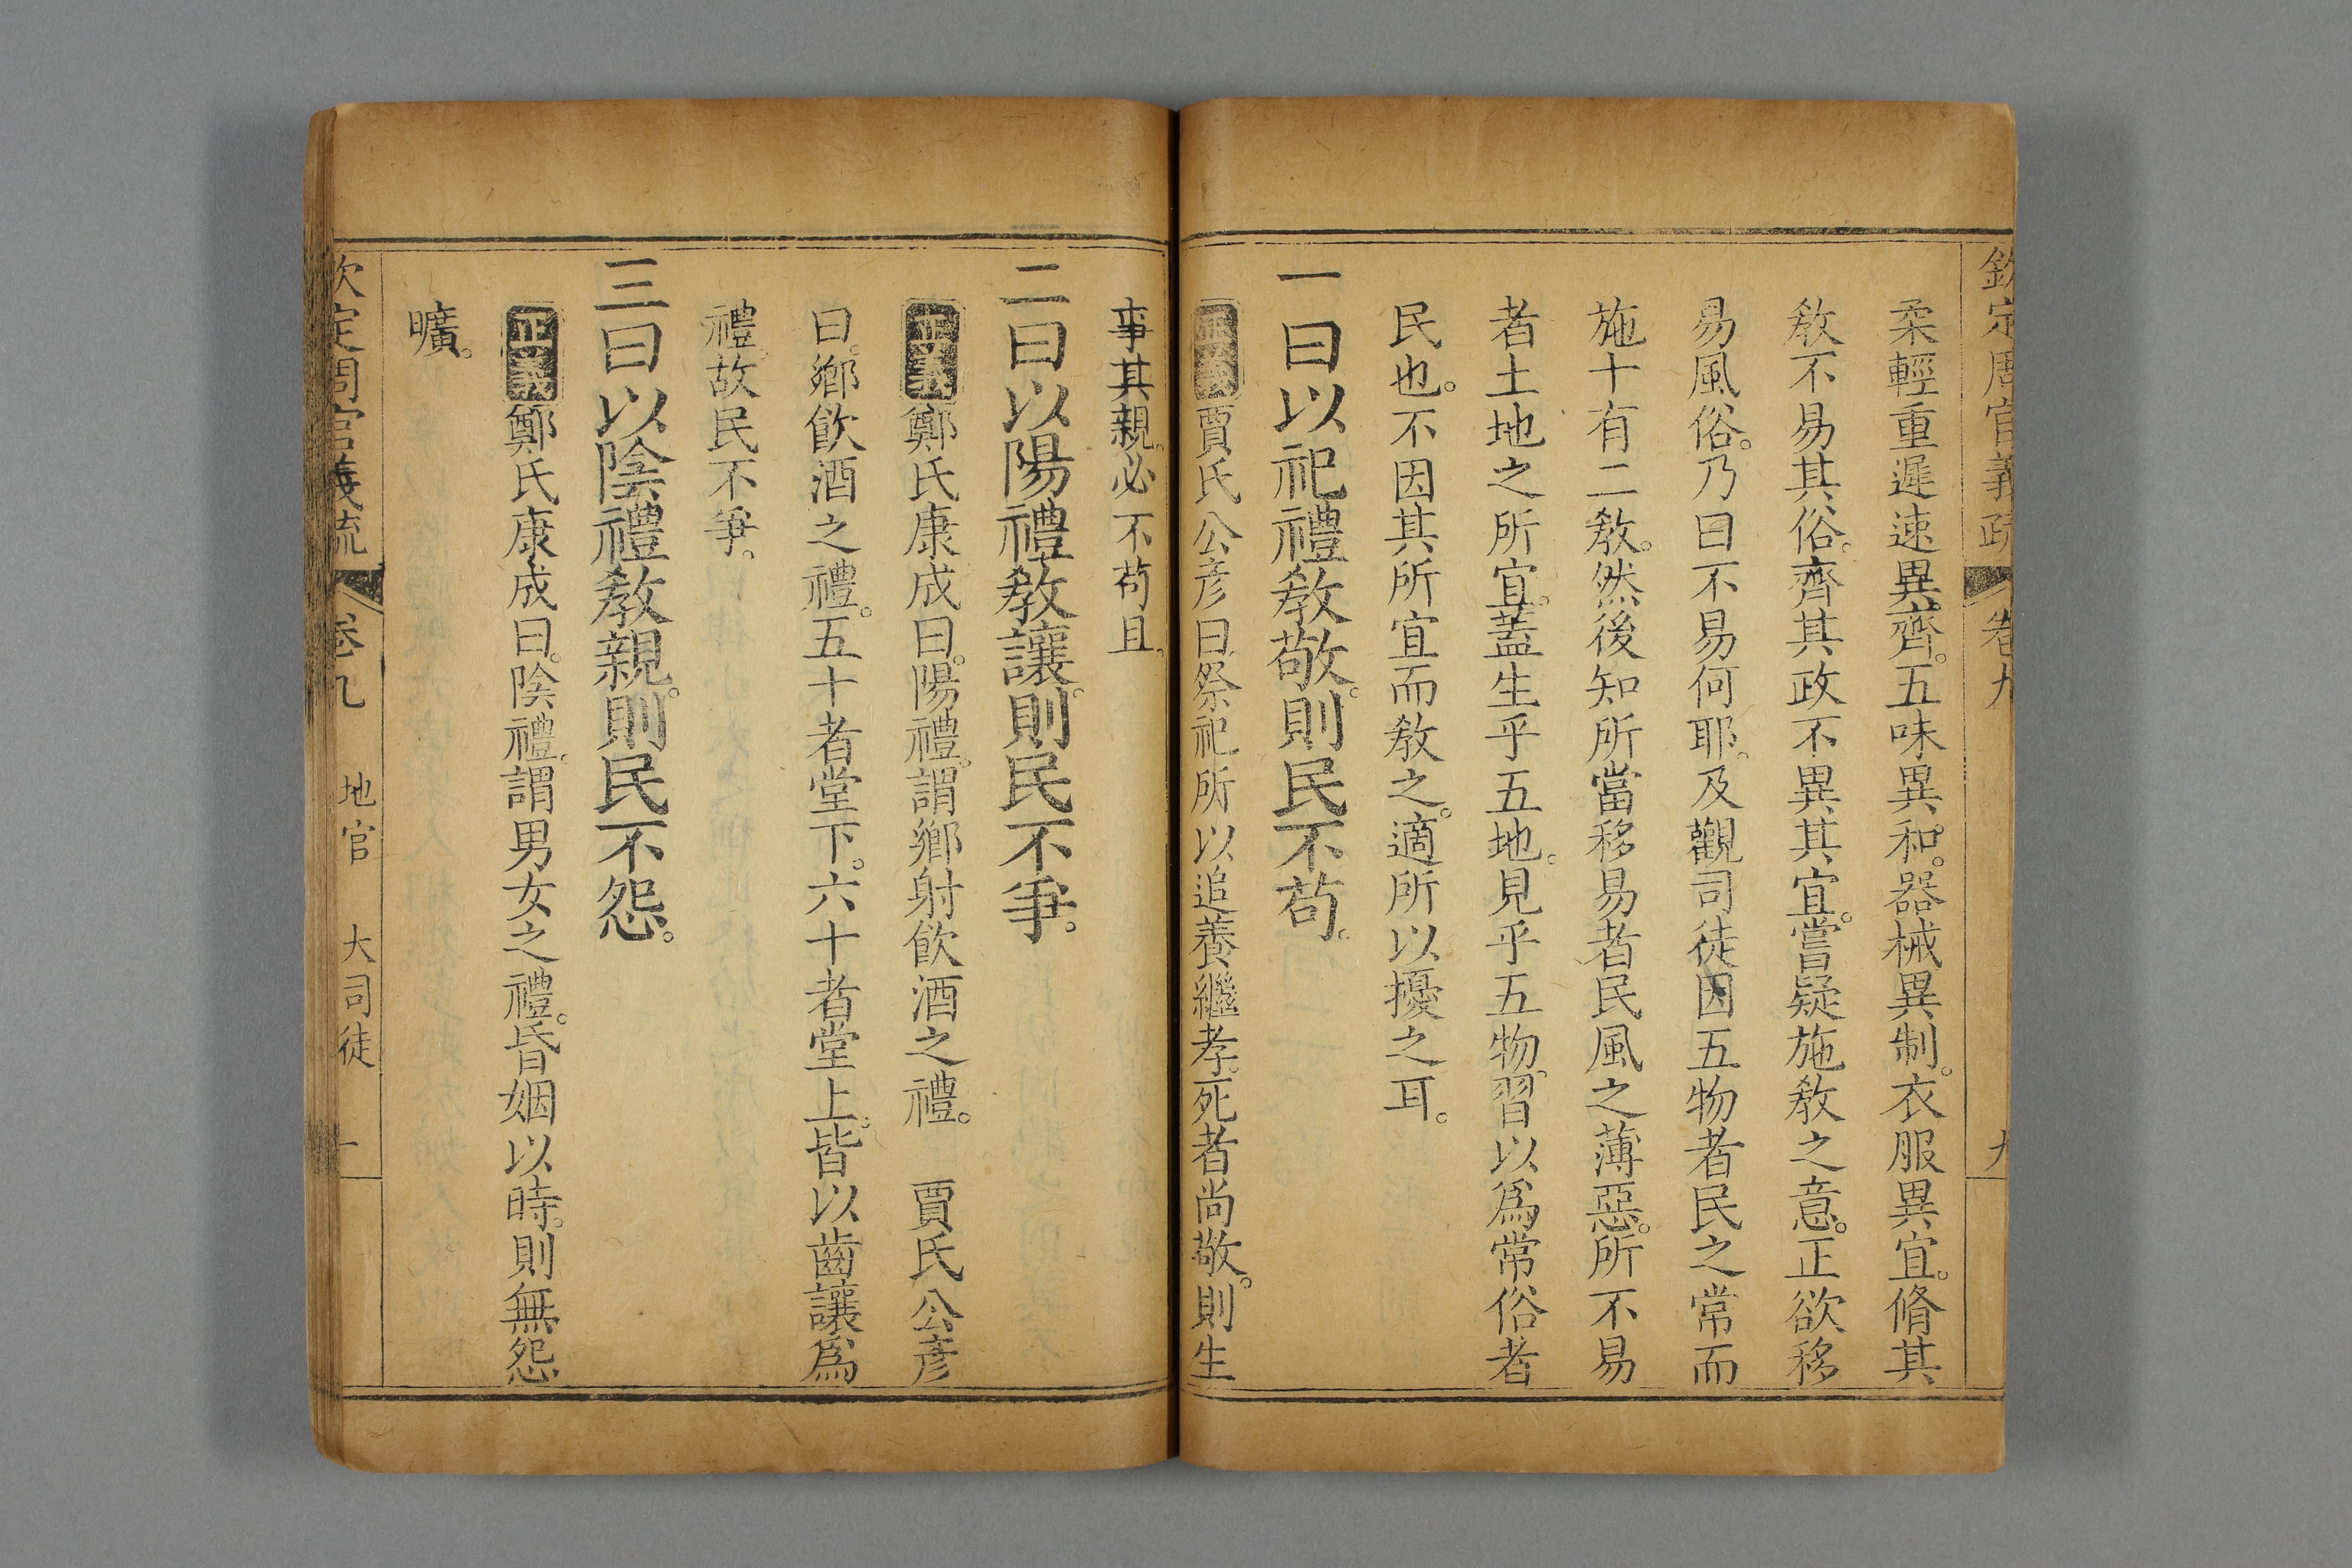 欽定周官義疏 卷九 九
柔輕重遲速異齊。五味異和。器械異制。衣服異宜。脩其
敎不易其俗。齊其政不異其宜。嘗疑施敎之意。正欲移
易風俗。乃曰不易何耶。及觀司徒因五物者民之常而
施十有二敎。然後知所當移易者民風之薄惡。所不易
者土地之所宜。蓋生乎五地。見乎五物。習以爲常俗者
民也。不因其所宜而敎之。適所以擾之耳。
一曰以祀禮敎敬。則民不苟。
正義賈氏公彥曰。祭祀所以追養繼孝。死者尚敬。則生
事其親。必不苟且。
二曰以陽禮敎讓。則民不爭。
正義鄭氏康成曰。陽禮。謂鄉射飲酒之禮。 賈氏公彥
曰。鄉飲酒之禮。五十者堂下。六十者堂上。皆以齒讓爲
禮。故民不爭。
三曰以陰禮敎親。則民不怨。
正義鄭氏康成曰。陰禮。謂男女之禮。昏姻以時。則無怨
曠。
欽定周官義疏 卷九 地官 大司徒